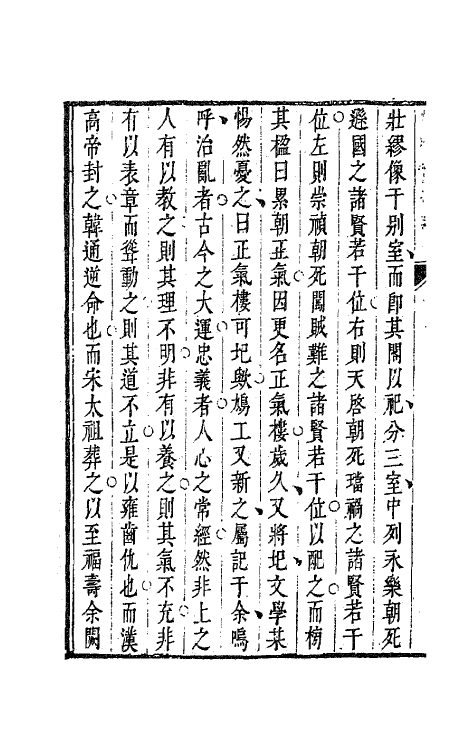 壯繆像于別室而卽其閣以祀分三室中列永樂朝死
遜國之諸賢若干位右則天啓朝死璫禍之諸賢若干
位左則崇禎朝死闖賊難之諸賢若干位以配之而榜
其楹曰累朝正氣因更名正氣樓歲久又將圮文學某
惕然憂之曰正氣樓可圮歟鳩工又新之屬記于余嗚
呼治亂者古今之大運忠義者人心之常經然非上之
人有以教之則其理不明非有以養之則其氣不充非
有以表章而聳動之則其道不立是以雍齒仇也而漢
高帝封之韓通逆命也而宋太祖葬之以至福壽余闕